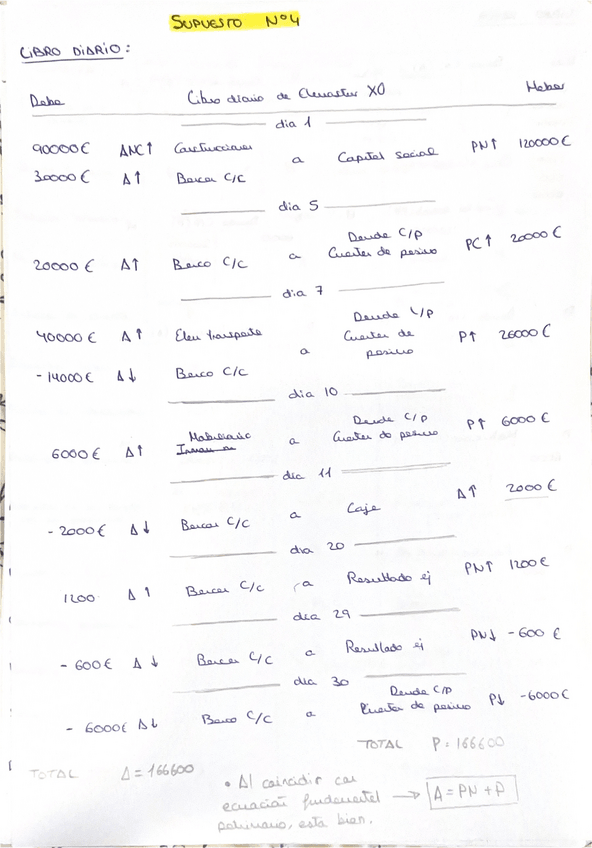 SUPUESTO Nº4
LIBRO DIARIO:
Debe Libro diario de XO Haber
día 1
90000€ ANC↑ Construcciones a Capital social PN↑ 120000€
30000€ A↑ Bancos C/C
día 5
20000€ A↑ Banco C/C a Deuda C/P Cuentas de pasivo PC↑ 20000€
día 7
40000€ A↑ Elem transporte a Deuda L/P Cuentas de pasivo P↑ 26000€
-14000€ A↓ Banco C/C
día 10
6000€ A↑ Mobiliario a Deuda C/P Cuentas de pasivo P↑ 6000€
día 11
-2000€ A↓ Bancos C/C a Caja A↑ 2000€
día 20
1200 A↑ Bancos C/C a Resultado ej PN↑ 1200€
día 29
-600€ A↓ Bancos C/C a Resultado ej PN↓ -600€
día 30
-6000€ A↓ Banco C/C a Deuda C/P Cuentas de pasivo P↓ -6000€
TOTAL P=166600
TOTAL A=166600
• Al coincidir con
ecuación fundamental → A=PN+P
patrimonio, esta bien.